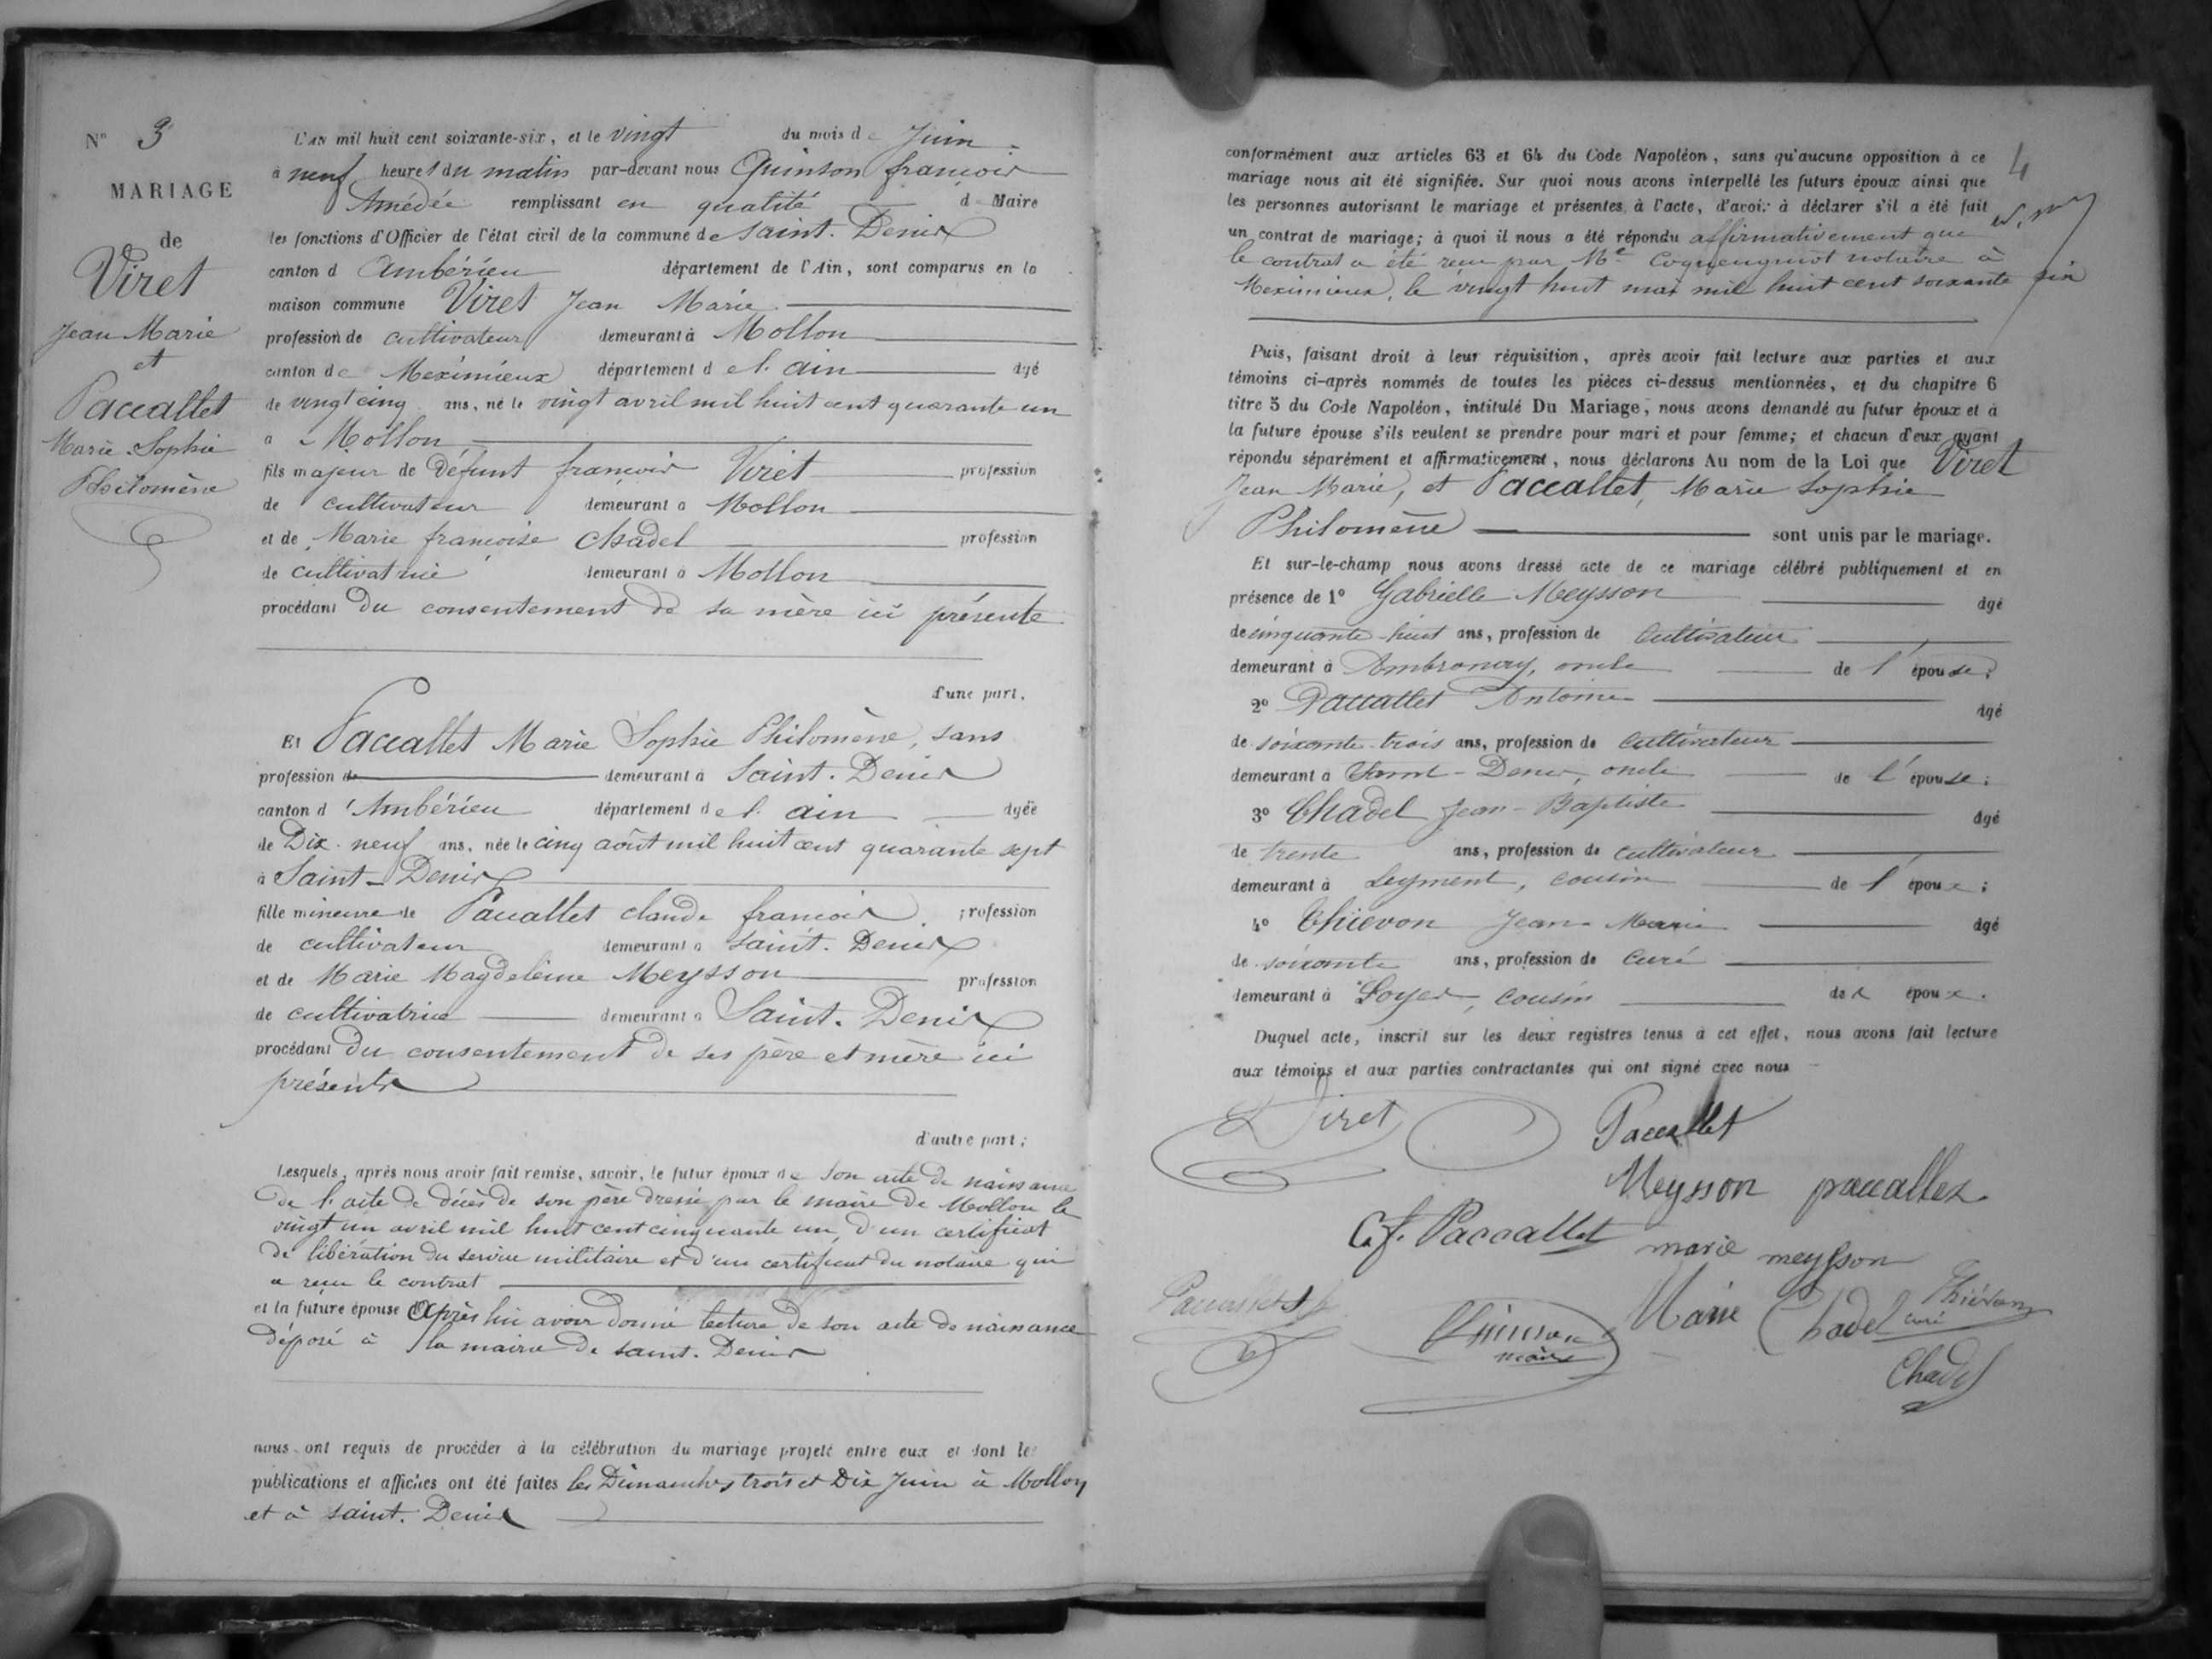 N° 3
MARIAGE
de
Viret
Jean Marie
et
Paccallet
Marie Sophie
Philomène
L'AN mil huit cent soixante-six, et le vingt du mois de Juin
à neuf heures du matin par-devant nous Quinson françois
Amédée remplissant en qualité de Maire
les fonctions d'Officier de l'état civil de la commune de Saint. Denis
canton d'Ambérieu département de l'Ain, sont comparus en la
maison commune Viret Jean Marie
profession de cultivateur demeurant à Mollon
canton de Meximieux département de l'ain âgé
de vingt cinq ans, né le vingt avril mil huit cent quarante un
à Mollon
fils majeur de Défunt françois Viret profession
de cultivateur demeurant à Mollon
et de Marie françoise Chadel profession
de cultivatrice demeurant à Mollon
procédant Du consentement de sa mère ici présente
d'une part.
Et Paccallet Marie Sophie Philomène, sans
profession de demeurant à Saint. Denis
canton d'Ambérieu département de l'ain âgée
de Dix neuf ans, née le cinq août mil huit cent quarante sept
à Saint-Denis
fille mineure de Paccallet claude françois profession
de cultivateur demeurant à Saint. Denis
et de Marie Magdeleine Meysson profession
de cultivatrice demeurant à Saint. Denis
procédant Du consentement de ses père et mère ici
présents
d'autre part;
Lesquels, après nous avoir fait remise, savoir, le futur époux de son acte de naissance
De l'acte de décès de son père Dressé par le maire de Mollon le
vingt un avril mil huit cent cinquante un, d'un certificat
de libération du service militaire et d'un certificat du notaire qui
a reçu le contrat
et la future épouse Après lui avoir donné lecture de son acte de naissance
déposé à la mairie de Saint. Denis
nous ont requis de procéder à la célébration du mariage projeté entre eux et dont les
publications et affiches ont été faites les Dimanches trois et Dix Juin à Mollon
et à Saint. Denis
4
conformément aux articles 63 et 64 du Code Napoléon, sans qu'aucune opposition à ce
mariage nous ait été signifiée. Sur quoi nous avons interpellé les futurs époux ainsi que
les personnes autorisant le mariage et présentes à l'acte, d'avoir à déclarer s'il a été fait
un contrat de mariage; à quoi il nous a été répondu affirmativement que
le contrat a été reçu par Me notaire à
Meximieux, le vingt huit mai mil huit cent soixante six
Puis, faisant droit à leur réquisition, après avoir fait lecture aux parties et aux
témoins ci-après nommés de toutes les pièces ci-dessus mentionnées, et du chapitre 6
titre 5 du Code Napoléon, intitulé Du Mariage, nous avons demandé au futur époux et à
la future épouse s'ils veulent se prendre pour mari et pour femme; et chacun d'eux ayant
répondu séparément et affirmativement, nous déclarons Au nom de la Loi que Viret
Jean Marie, et Paccallet, Marie Sophie
Philomène sont unis par le mariage.
Et sur-le-champ nous avons dressé acte de ce mariage célébré publiquement et en
présence de 1° Gabrielle Meysson âgé
de cinquante-huit ans, profession de Cultivateur
demeurant à Ambronay, oncle de l'épouse;
2° Paccallet Antoine âgé
de soixante-trois ans, profession de Cultivateur
demeurant à Saint-Denis, oncle de l'épouse;
3° Chadel Jean-Baptiste âgé
de trente ans, profession de cultivateur
demeurant à Leyment, cousin de l'époux;
4° Thiévon Jean-Marie âgé
de soixante ans, profession de Curé
demeurant à Loyes, cousin de l'époux.
Duquel acte, inscrit sur les deux registres tenus à cet effet, nous avons fait lecture
aux témoins et aux parties contractantes qui ont signé avec nous
Viret Paccallet
Meysson paccallet
C. f. Paccallet marie meysson
Paccallet Quinson maire Marie Chadel Thiévon curé
Chadel